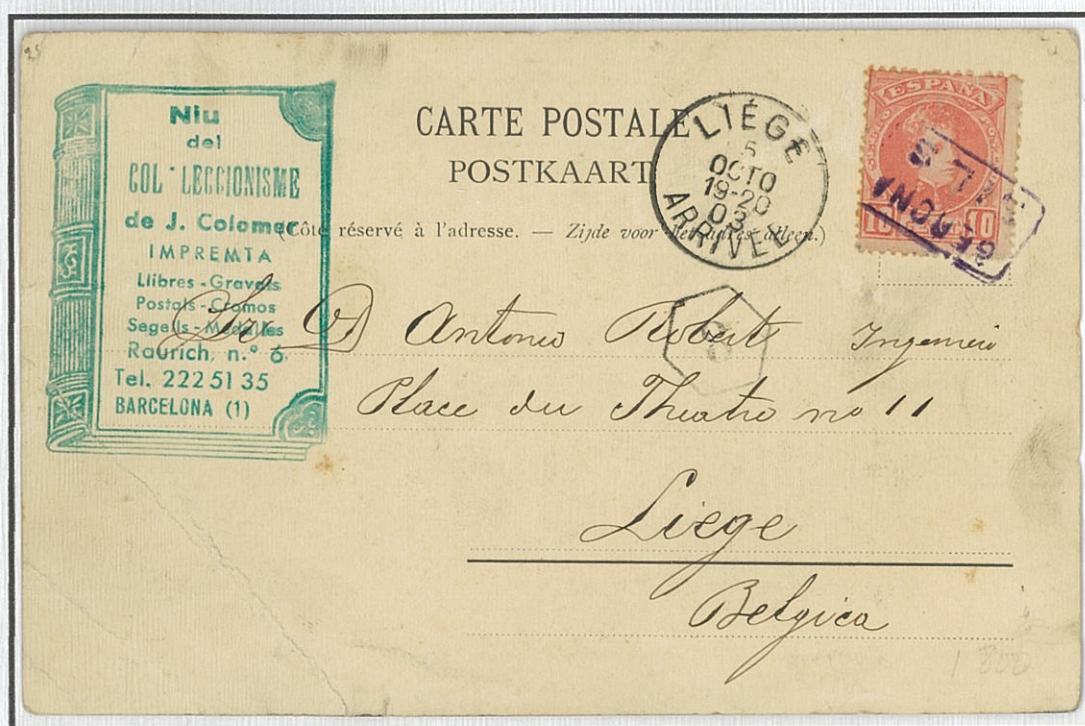 25
Niu
del
COL·LECCIONISME
de J. Colomer
IMPREMTA
Llibres - Gravats
Postals - Cromos
Segells - Medalles
Raurich, n.º 6
Tel. 222 51 35
BARCELONA (1)
CARTE POSTALE
POSTKAART
(Côté réservé à l'adresse. — Zijde voor het adres alleen.)
LIÉGE
5
OCTO
19-20
03
ARRIVEE
ESPAÑA
10 10
GERONA
Sr D Antonio Robert Ingeniero
8
Place du Theatre no 11
Liege
Belgica
1 800